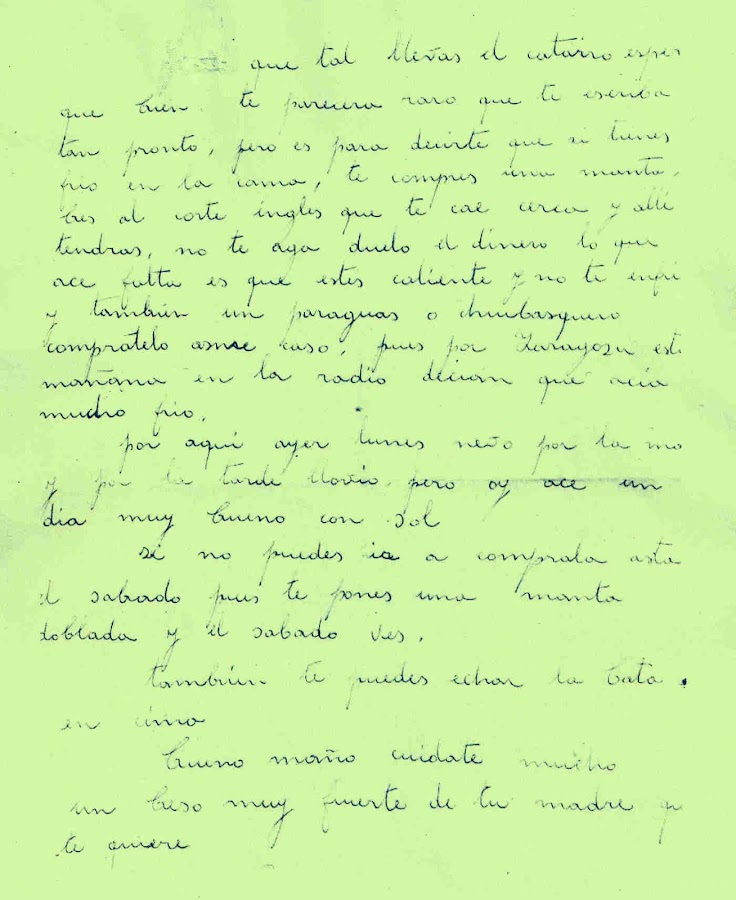 que tal lleñas el catarro esper
que bien. te parecera raro que te escriba
tan pronto, pero es para decirte que si tienes
frio en la cama, te compres una manta.
bes al corte ingles que te cae cerca y alli
tendras, no te aga duelo el dinero lo que
ace falta es que estes caliente y no te enfri
y tambien un paraguas o chubasquero
compratelo caso, pues por Zaragoza est
mañana en la radio decian que acia
mucho frio.
por aqui ayer lunes neño por la ma
y por la tarde llovio pero oy ace un
dia muy bueno con sol
si no puedes ir a comprala asta
el sabado pues te pones una manta
doblada y el sabado ves.
tambien te puedes echar la bata
en cima
bueno maño cuidate mucho
un beso muy fuerte de tu madre q
te quiere